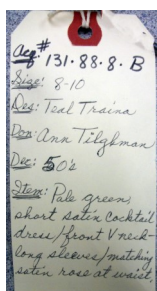 Acq# 131.88.8.B
Size: 8-10
Des: Teal Traina
Don: Ann Tilghman
Dec: 50's
Item: Pale green,
short satin cocktail
dress/front V neck-
long sleeves/matching
satin rose at waist.